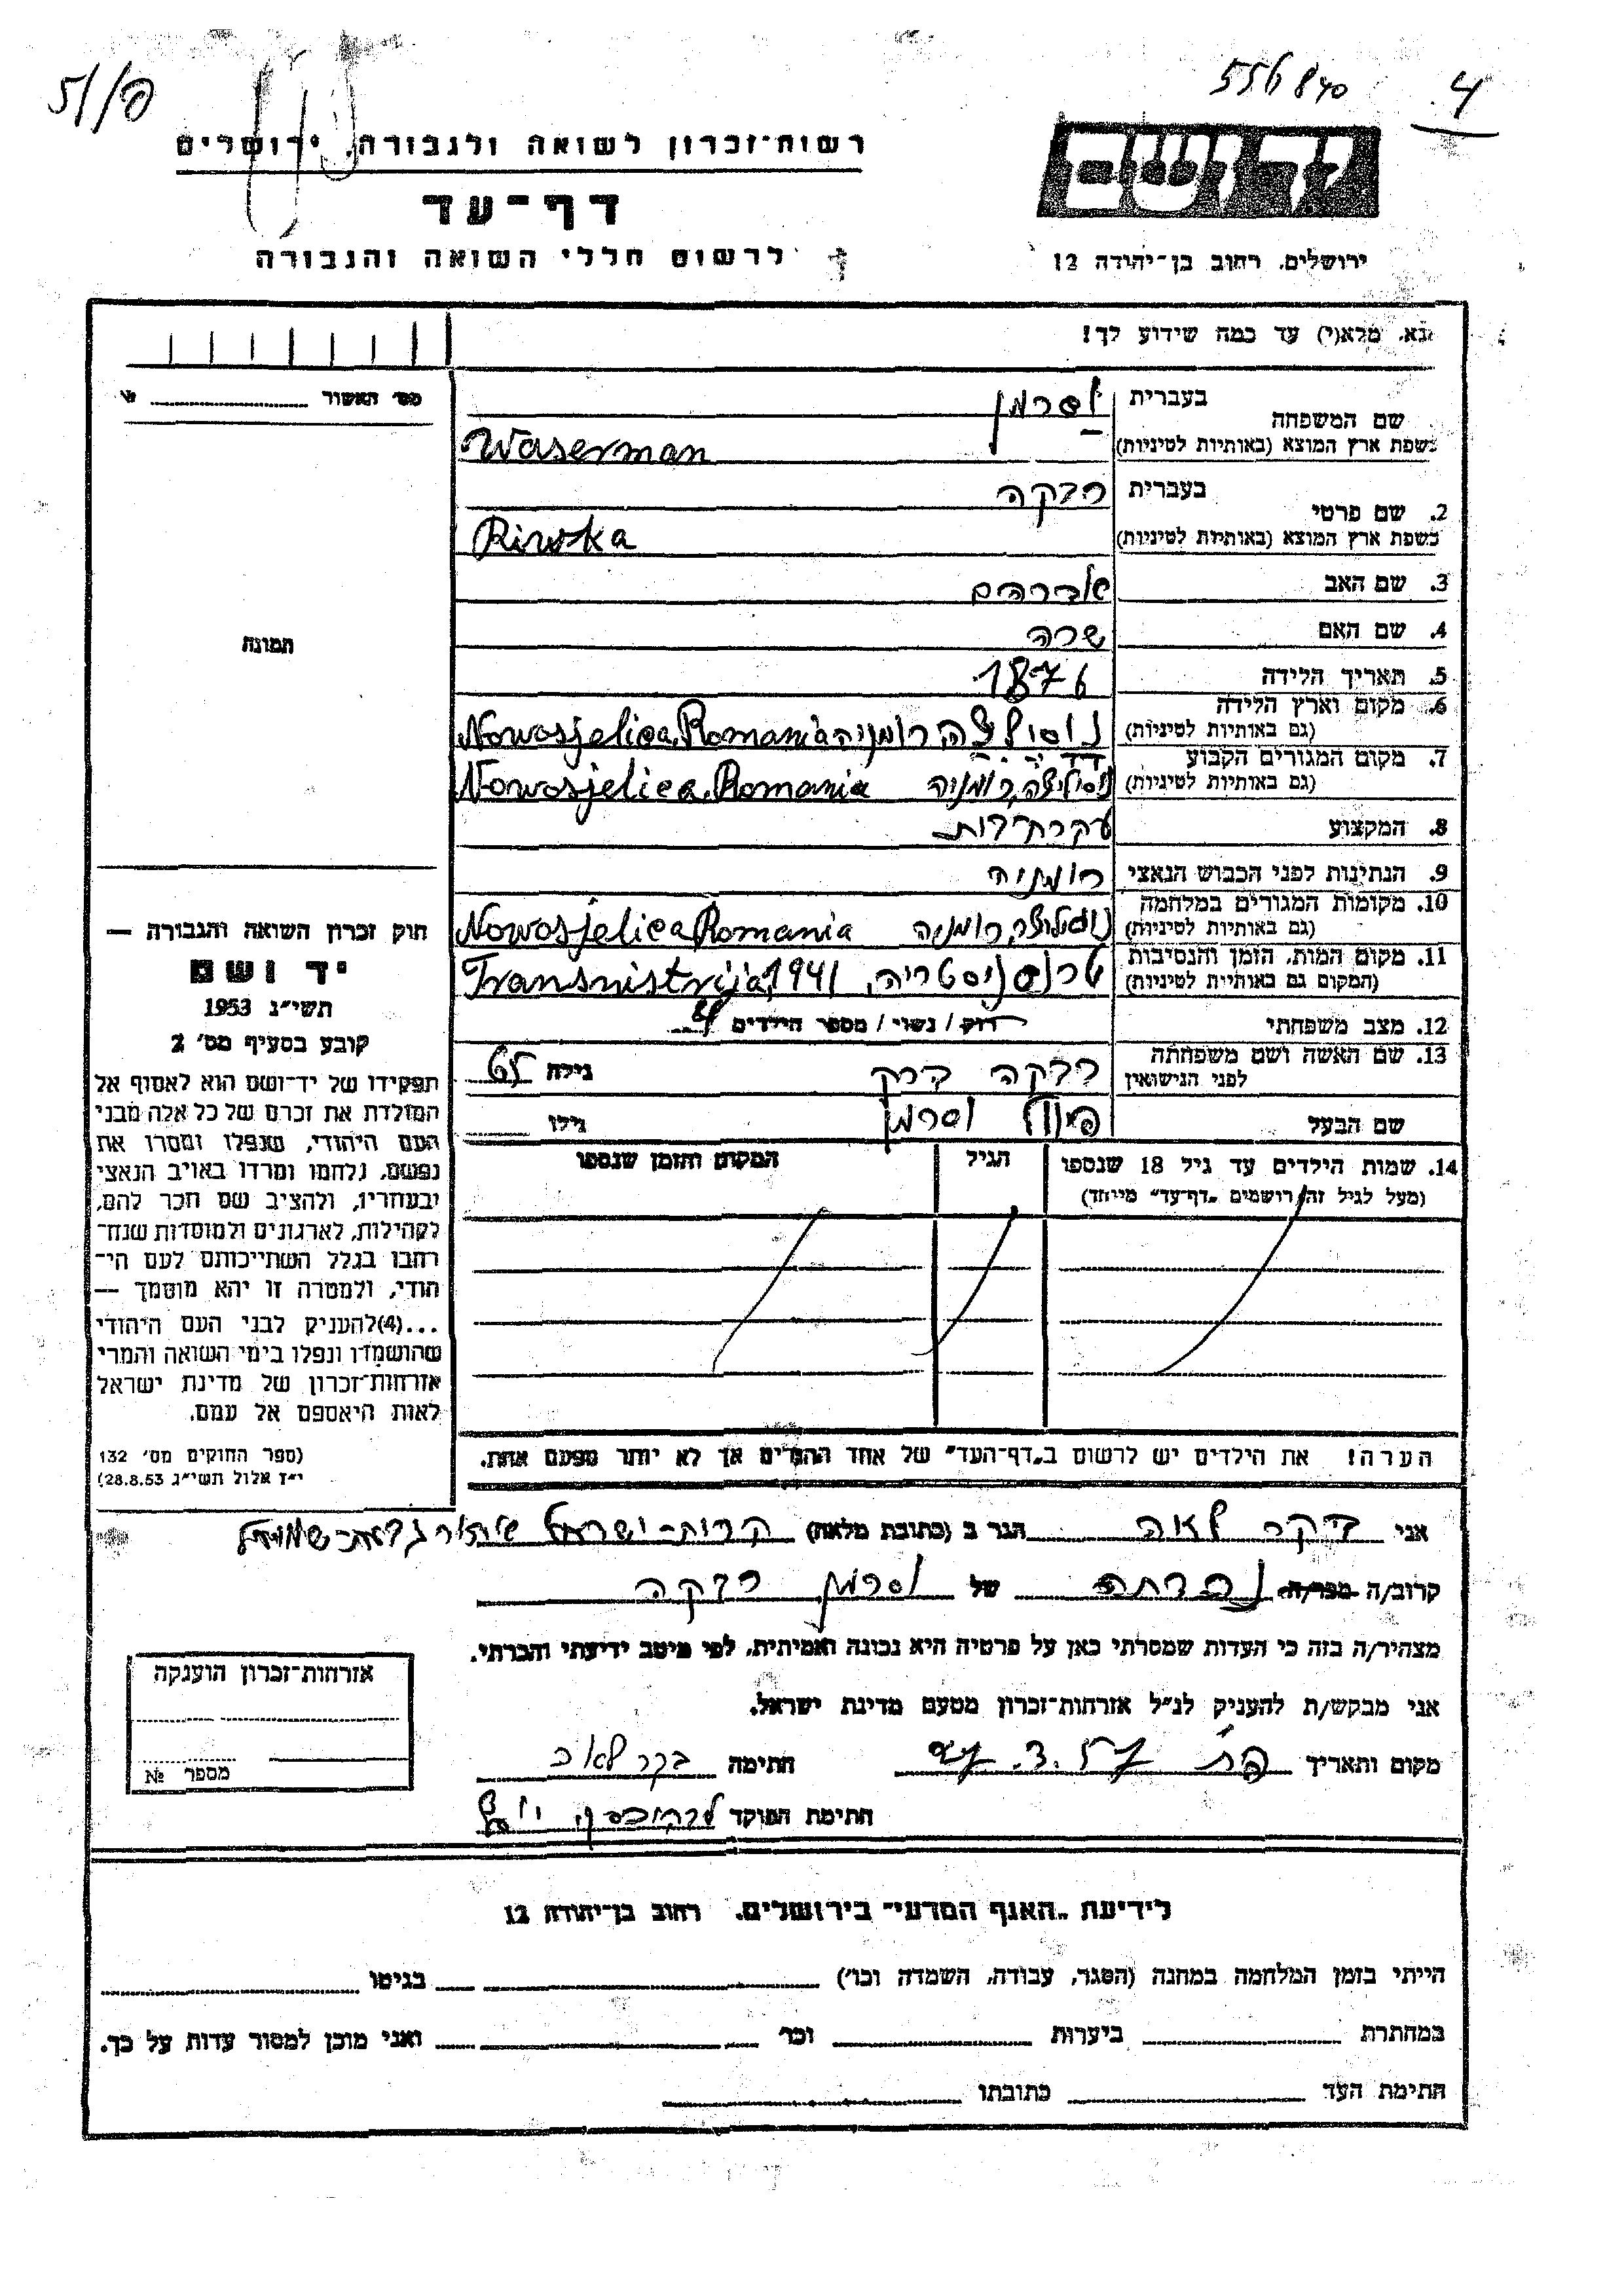 556840
4
5//פ
יד ושם
רשות־זכרון לשואה ולגבורה, ירושלים
דף־עד
לרשום חללי השואה והגבורה
ירושלים, רחוב בן־יהודה 12
נא, מלא(י) עד כמה שידוע לך!
שם המשפחה
בעברית
וסרמן
בשפת ארץ המוצא (באותיות לטיניות)
Waserman
2. שם פרטי
בעברית
רבקה
בשפת ארץ המוצא (באותיות לטיניות)
Riwka
3. שם האב
אברהם
4. שם האם
שרה
5. תאריך הלידה
1876
6. מקום וארץ הלידה
(גם באותיות לטיניות)
רומניה Nowosjelica, Romania
7. מקום המגורים הקבוע
(גם באותיות לטיניות)
נוסליצה, רומניה Nowosjelica, Romania
8. המקצוע
עקרת בית
9. הנתינות לפני הכבוש הנאצי
רומניה
10. מקומות המגורים במלחמה
(גם באותיות לטיניות)
נוסליצה, רומניה Nowosjelica Romania
11. מקום המות, הזמן והנסיבות
(המקום גם באותיות לטיניות)
טרנסניסטריה, Transnistrija, 1941
12. מצב משפחתי
רוק / נשוי / מספר הילדים
13. שם האשה ושם משפחתה
לפני הנישואין
רבקה גילה 65
שם הבעל
וסרמן גילו
14. שמות הילדים עד גיל 18 שנספו
(מעל לגיל זה רושמים „דף־עד” מייחד)
הגיל
המקום והזמן שנספו
הערה! את הילדים יש לרשום ב„דף־העד” של אחד ההורים אך לא יותר מפעם אחת.
מס׳ האשור
תמונה
חוק זכרון השואה והגבורה —
יד ושם
תשי״ג 1953
קובע בסעיף מס׳ 2
תפקידו של יד־ושם הוא לאסוף אל
המולדת את זכרם של כל אלה מבני
העם היהודי, שנפלו ומסרו את
נפשם, נלחמו ומרדו באויב הנאצי
ובעוזריו, ולהציב שם וזכר להם,
לקהילות, לארגונים ולמוסדות שנח־
רבו בגלל השתייכותם לעם הי־
הודי, ולמטרה זו יהא מוסמך —
...(4)להעניק לבני העם היהודי
שהושמדו ונפלו בימי השואה והמרי
אזרחות־זכרון של מדינת ישראל
לאות היאספם אל עמם.
(ספר החוקים מס׳ 132
י״ז אלול תשי״ג 28.8.53)
אני בקר לאה הגר ב (כתובת מלאה) קרית-ישראל
קרוב/ה מכר/ה של וסרמן רבקה
מצהיר/ה בזה כי העדות שמסרתי כאן על פרטיה היא נכונה ואמיתית, לפי מיטב ידיעתי והכרתי.
אני מבקש/ת להעניק לנ״ל אזרחות־זכרון מטעם מדינת ישראל.
מקום ותאריך חתימה בקר לאה
חתימת הפוקד
אזרחות־זכרון הוענקה
מספר №
לידיעת „האגף המדעי” בירושלים, רחוב בן־יהודה 12
הייתי בזמן המלחמה במחנה (הסגר, עבודה, השמדה וכו׳) בגיטו
במחתרת ביערות וכו׳ ואני מוכן למסור עדות על כך.
חתימת העד כתובתו